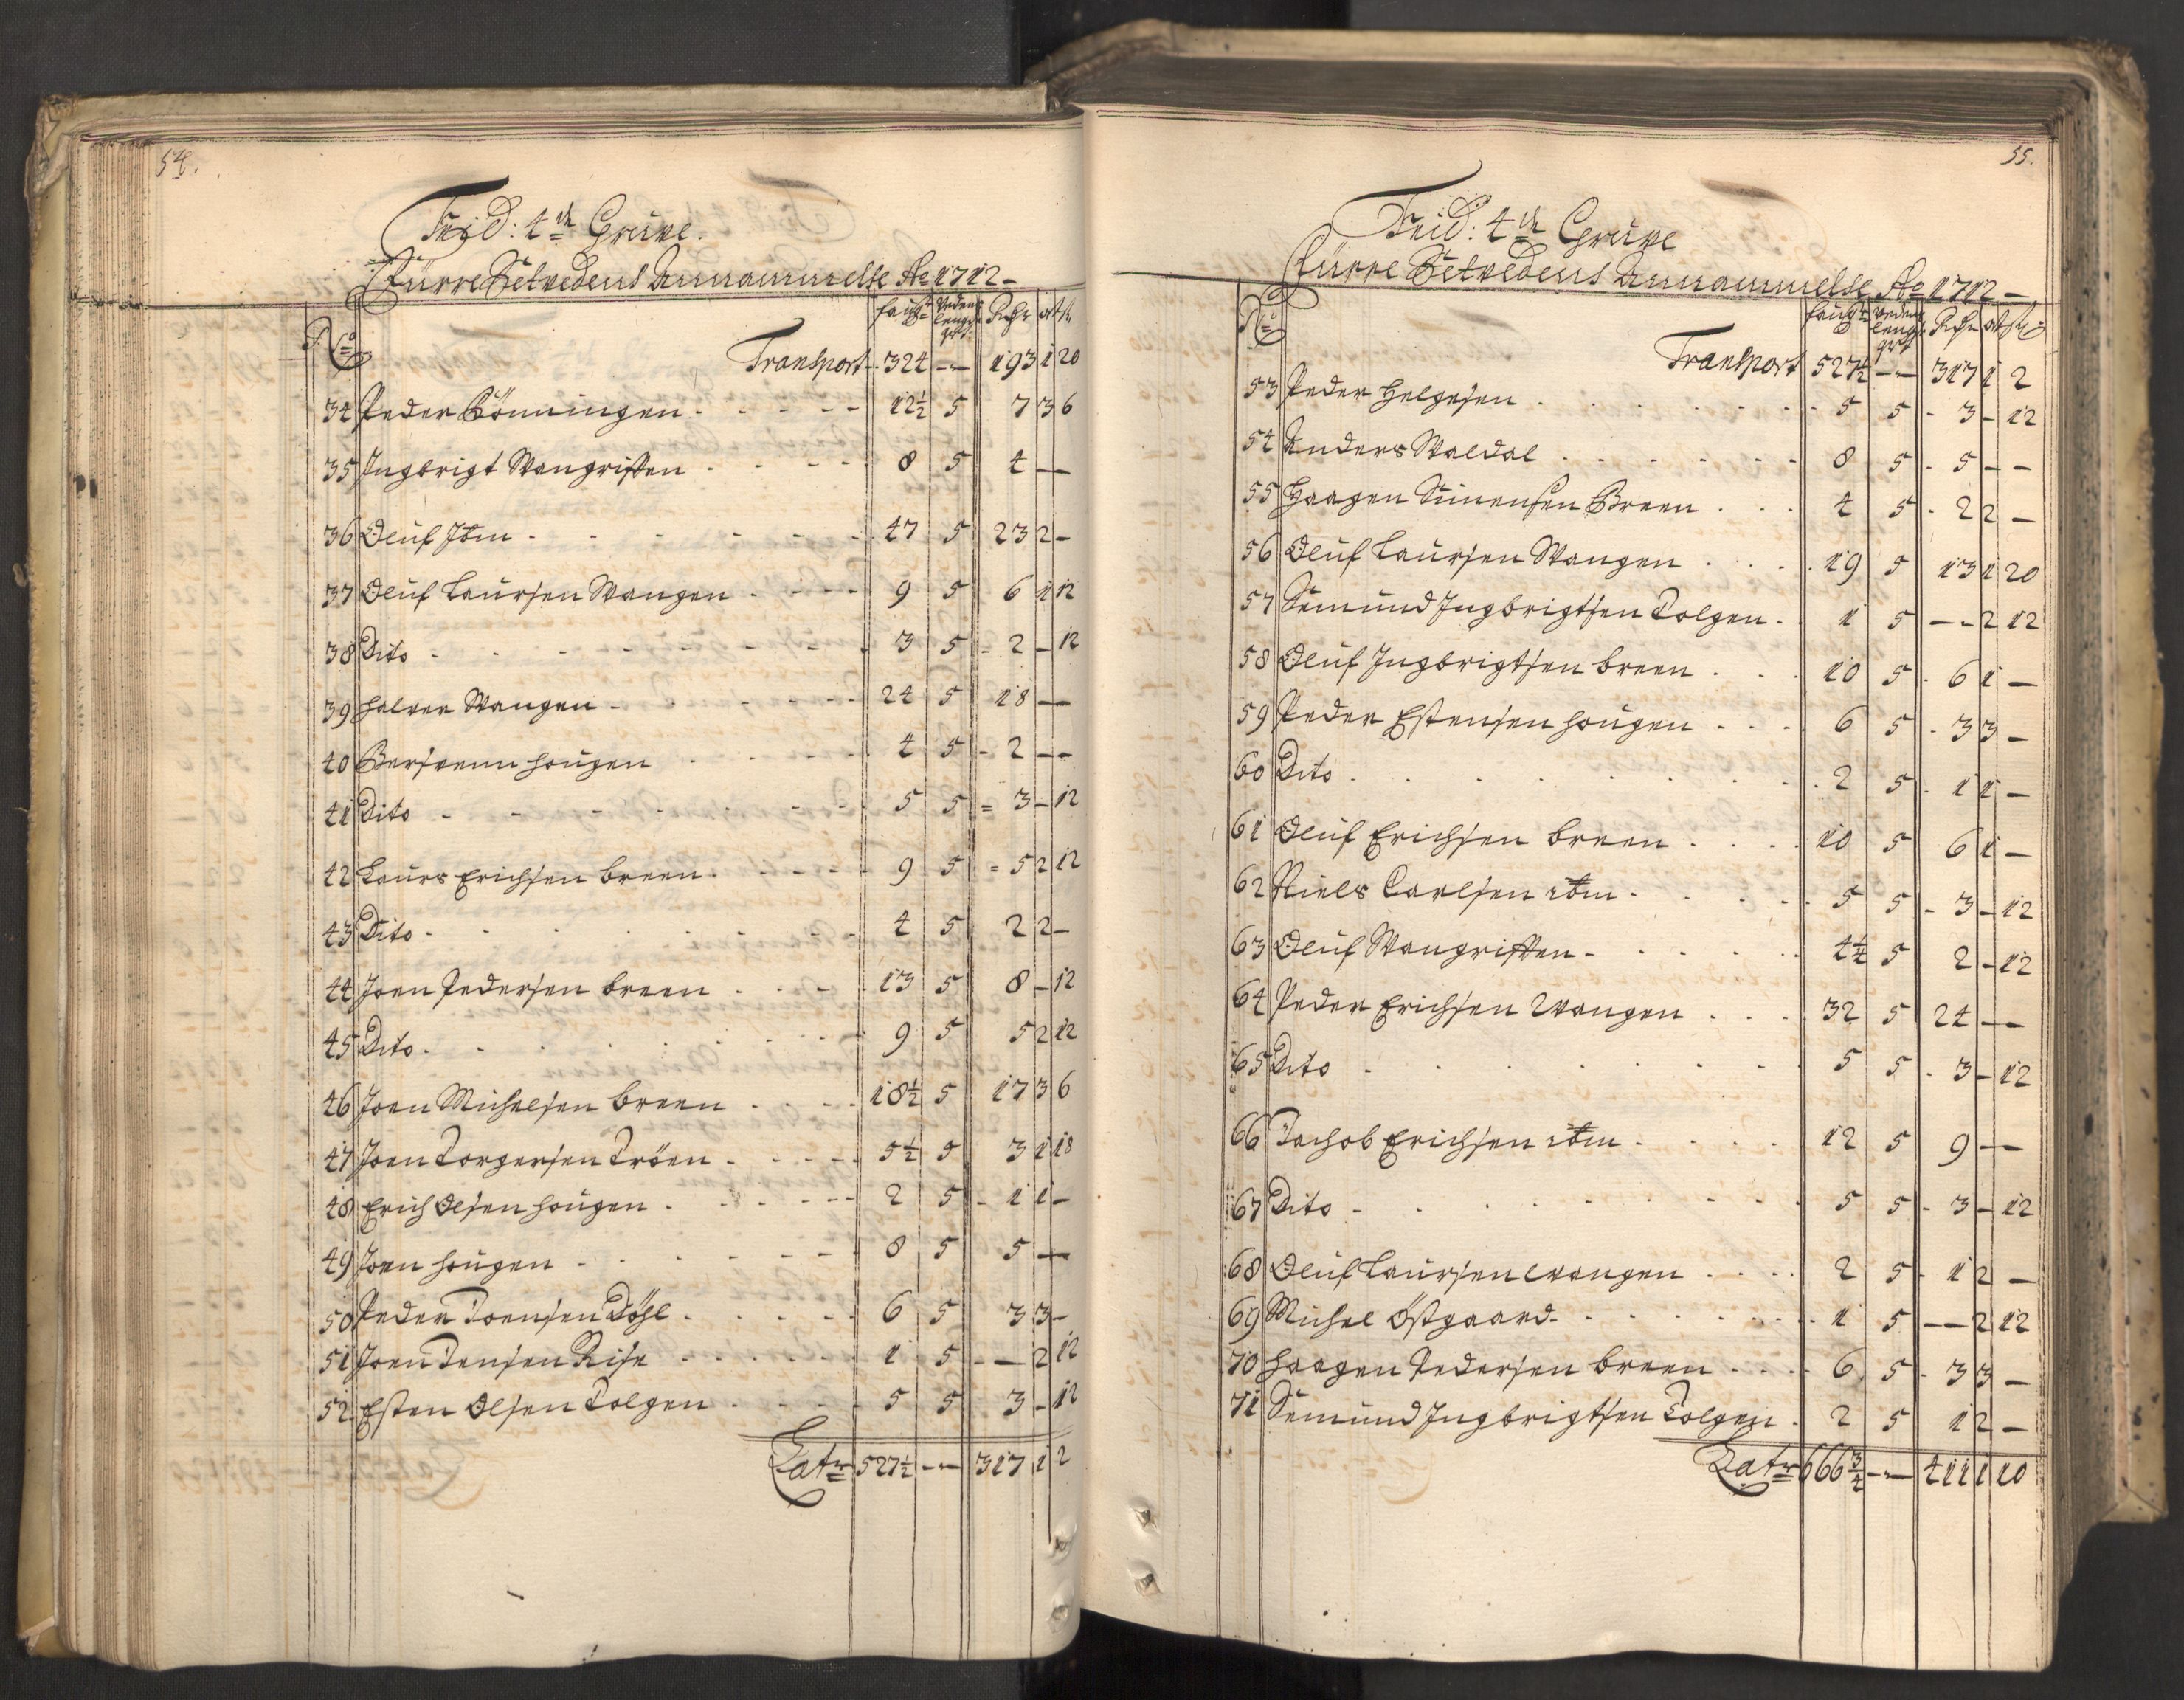 54.
Frid: 4de Gruve.
Fürre Setvedens Annammelse Ao 1712 –
No faufn Vedens lengde qrt Rdr ort ß
Transport 324 – – 193 1 20
34 Peder Bönningen 12½ 5 7 3 6
35 Ingbrigt Wangristen 8 5 4 –
36 Oluf Itm 47 5 23 2 –
37 Oluf Laursen Wangen 9 5 6 1 12
38 Dito 3 5 2 – 12
39 Halvor Wangen 24 5 18 –
40 Bersvenn Hougen 4 5 2 – –
41 Dito 5 5 3 – 12
42 Laurs Erichsen Breen 9 5 5 2 12
43 Dito 4 5 2 2 –
44 Joen Pedersen Breen 13 5 8 – 12
45 Dito 9 5 5 2 12
46 Joen Michelsen Breen 18½ 5 17 3 6
47 Joen Torgersen Tröen 5½ 5 3 1 18
48 Erich Olsen Hougen 2 5 1 1 –
49 Joen Hougen 8 5 5 –
50 Peder Joensen Döhl 6 5 3 3 –
51 Joen Jensen Rise 1 5 – 2 12
52 Esten Olsen Tolgen 5 5 3 – 12
Latr 527½ – – 317 1 2
55.
Frid: 4de Gruve
Fürre Setvedens Annammelse Ao 1712 –
No faufn Vedens lengd qrt Rdr ort ß
Transport 527½ – – 317 1 2
53 Peder Helgesen 5 5 3 – 12
54 Anders Waldal 8 5 5 – –
55 Haagen Simensen Breen 4 5 2 2 –
56 Oluf Laursen Wangen 19 5 13 1 20
57 Semund Ingbrigtsen Tolgen 1 5 – – 2 12
58 Oluf Ingbrigtsen Breen 10 5 6 1 –
59 Peder Estensen Hougen 6 5 3 3 –
60 Dito 2 5 1 1 –
61 Oluf Erichsen Breen 10 5 6 1 –
62 Niels Carlsen itm 5 5 3 – 12
63 Oluf Wangristen 4¼ 5 2 – 12
64 Peder Erichsen Wangen 32 5 24 – –
65 Dito 5 5 3 – 12
66 Jachob Erichsen itm 12 5 9 –
67 Dito 5 5 3 – 12
68 Oluf Laursen Wangen 2 5 1 2 –
69 Michel Östgaard 1 5 – – 2 12
70 Haagen Pedersen Breen 6 5 3 3 –
71 Semund Ingbrigtsen Tolgen 2 5 1 2 –
Latr 666¾ – – 411 1 10